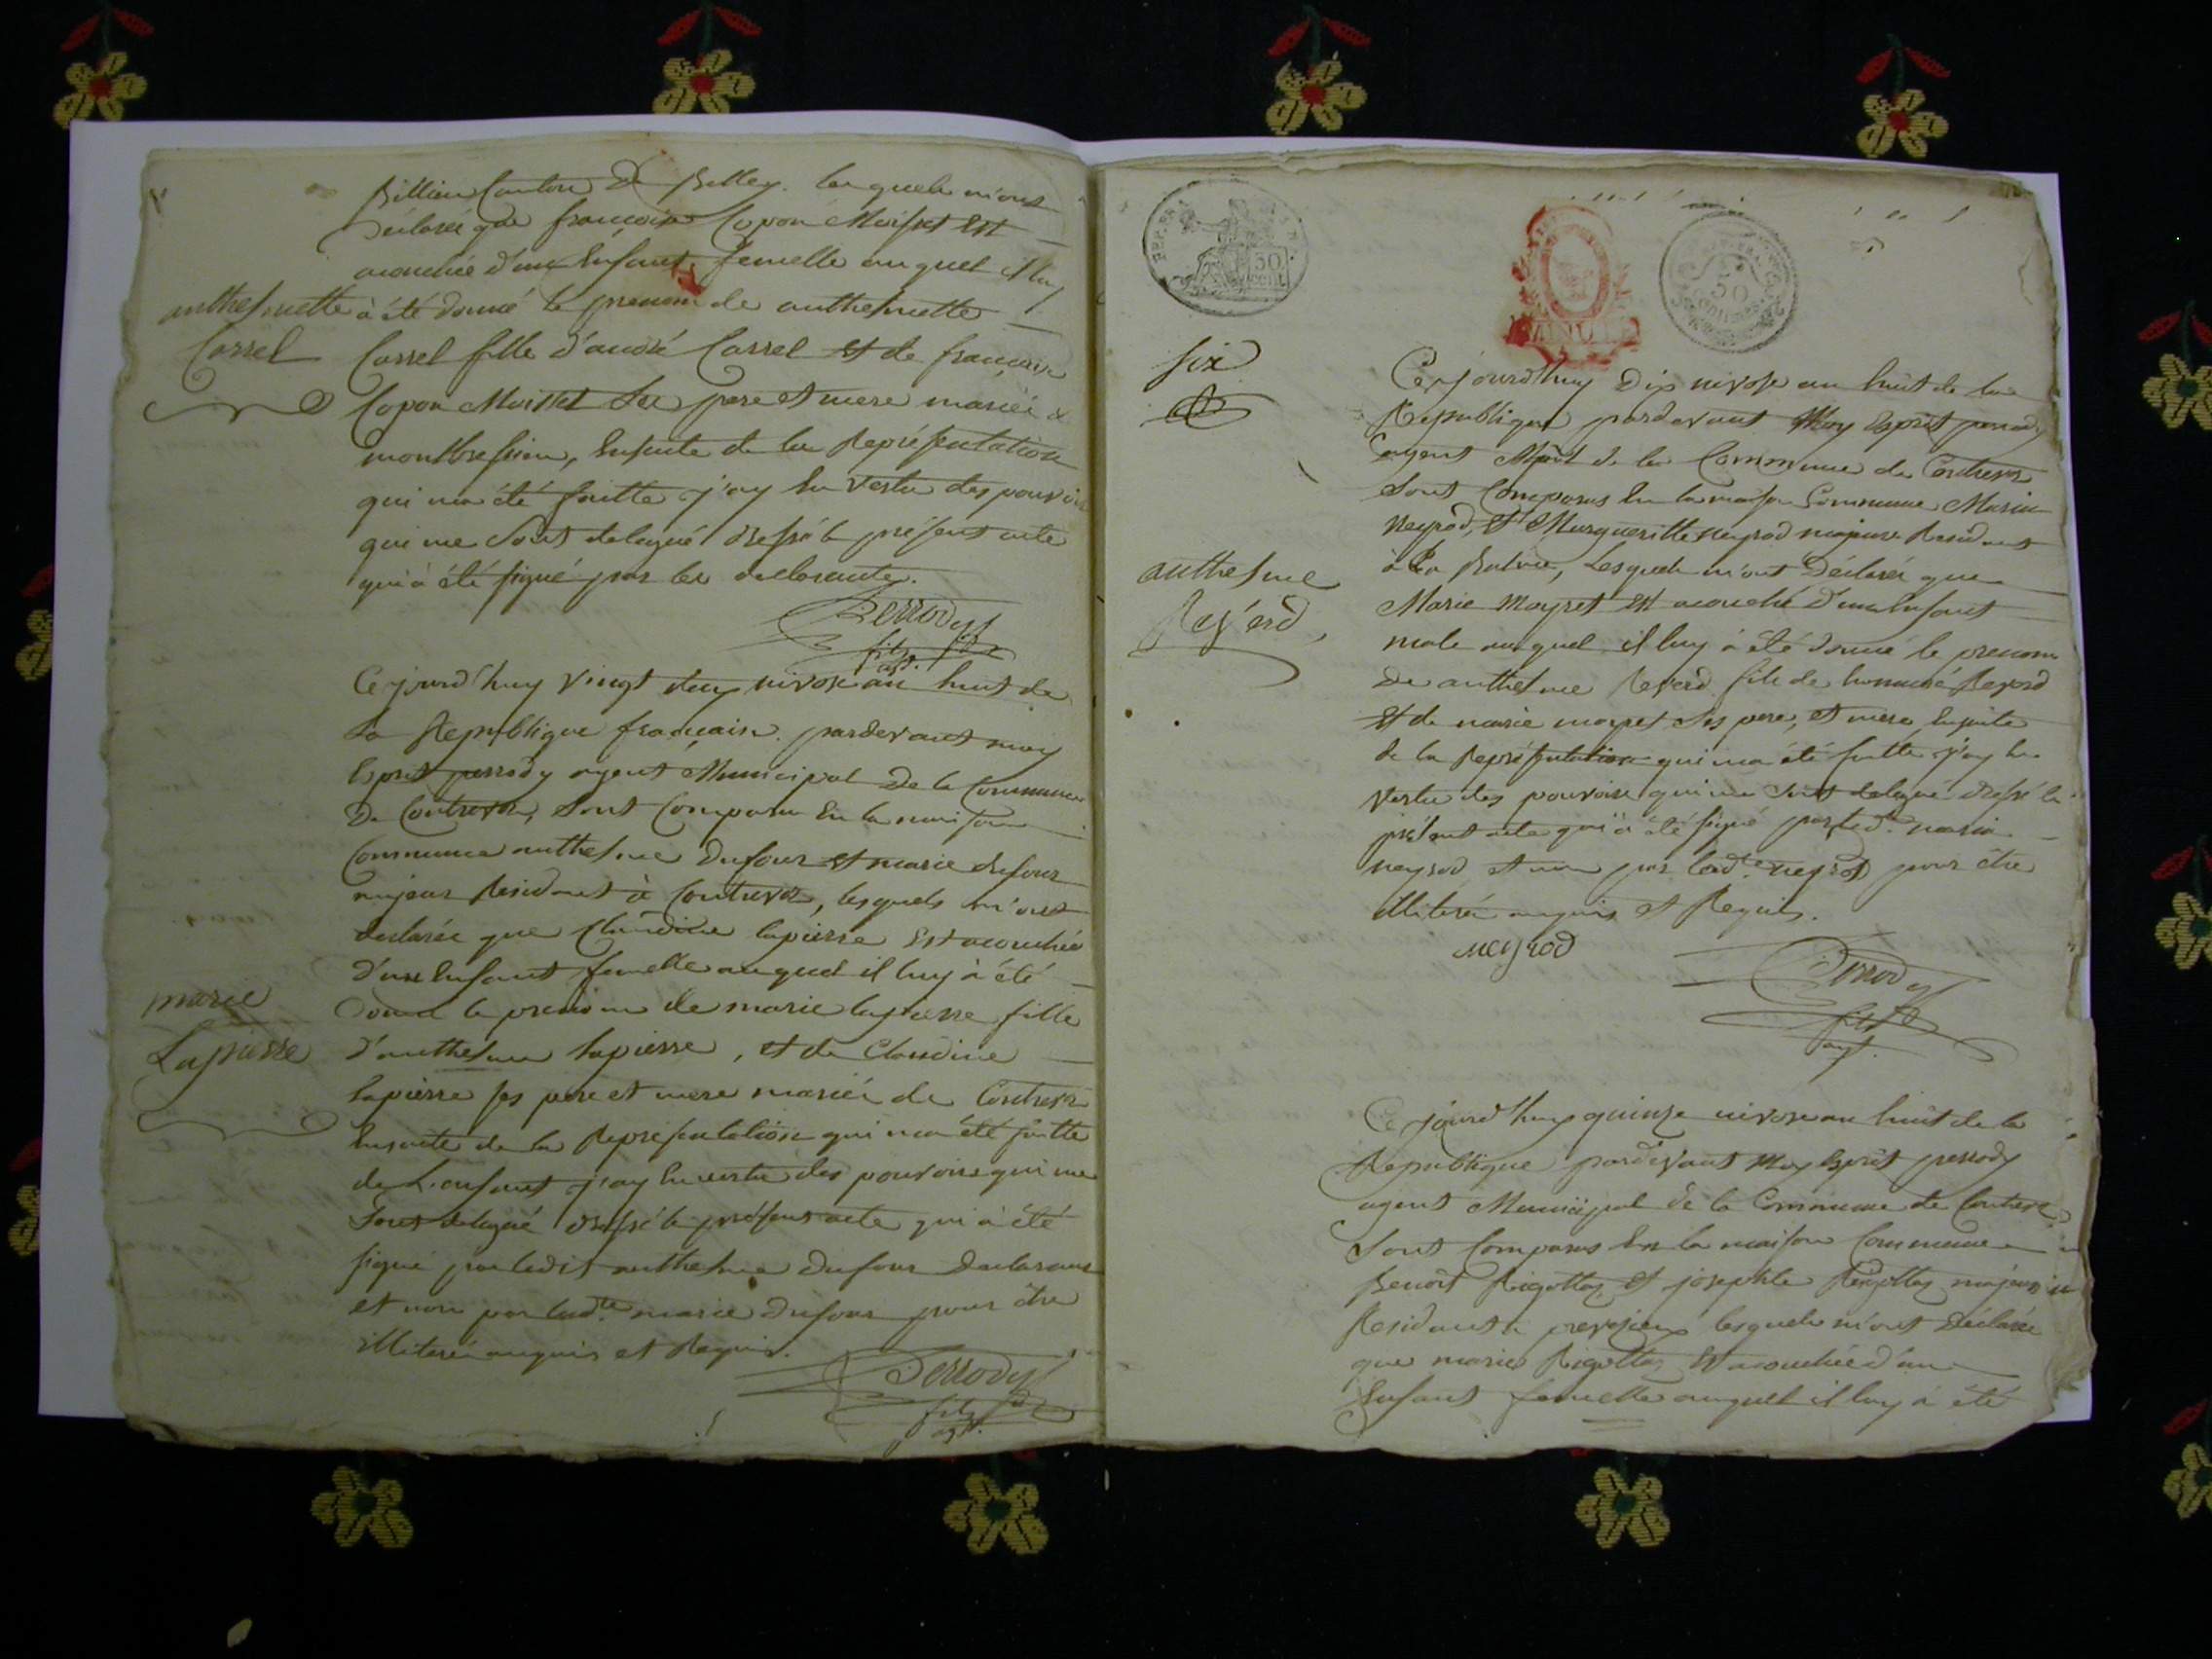 Billieu Canton De Belley. les quels m'ont
Déclaréz que françoise Copon Moisset est
acouchée d'un Enfant femelle auquel il luy
anthelmette
à été donné le prenom de anthelmette
Cassel
Cassel fille d'andré Cassel et de françoise
Copon Moisset Ses pere et mere mariéz
Ensuite de la Représentation
qui ma été faitte j'ay En vertu des pouvoirs
qui me Sont delegué dressé le présent acte
qui à été signé par les declarants.
Perrody
fils
agt.
Ce jourd'huy vingt deux nivose an huit de
La République française pardevant moy
Esprit perrody agent Municipal De la Commune
De Contrevoz, Sont Comparu En la maison
Commune anthelme Dufour et marie dufour
majeur Residants à Contrevoz, lesquels m'ont
declaréz que Claudine lapierre Est acouchée
d'un Enfant femelle auquel il luy à été
marie
Lapierre
donné le prenom de marie lapierre fille
d'anthelme lapierre, et de Claudine
lapierre ses pere et mere mariéz de Contrevoz
Ensuite de la Représentation qui ma été faitte
de L'enfant j'ay En vertu des pouvoirs qui me
Sont delegué dressé le présent acte qui à été
signé par ledit anthelme Dufour declarant
et non par lad.te marie Dufour pour être
illiteré enquis et Requis.
Perrody
fils
agt.
REP. FRA.
50
cent.
MINUTE
50
CENTIMES
six
Ce jourd'huy Dix nivose an huit de la
République pardevant Moy Esprit perrody
agent Mpal de la Commune de Contrevoz
Sont Comparus En la maison Commune Marin
neyrod, Et Margueritte neyrod majeur Residants
à La Balme, Lesquels m'ont Déclaréz que
Marie Moyret est acouché d'un Enfant
anthelme
Reverd,
male auquel il luy à été donné le prenom
De anthelme Reverd fils de honnoré Reverd
Et de marie moyret Ses pere, et mere Ensuite
de la Représentation qui ma été faitte j'ay En
vertu des pouvoirs qui me Sont delegué dressé le
présent acte qui à été signé par led.t marin
neyrod et non par lad.te neyrod pour être
illiteré enquis et Requis.
neyrod
Perrody
fils
agt.
Ce jourd'huy quinze nivose an huit de la
République pardevant Moy Esprit perrody
agent Municipal de la Commune de Contrevoz
Sont Comparus En la maison Commune
Benoît Rigottaz et josephte Rigottaz majeurs
Residants à preveyzieux lesquels m'ont Déclaréz
que marie Rigottaz Est acouchée d'un
Enfant femelle auquel il luy à été